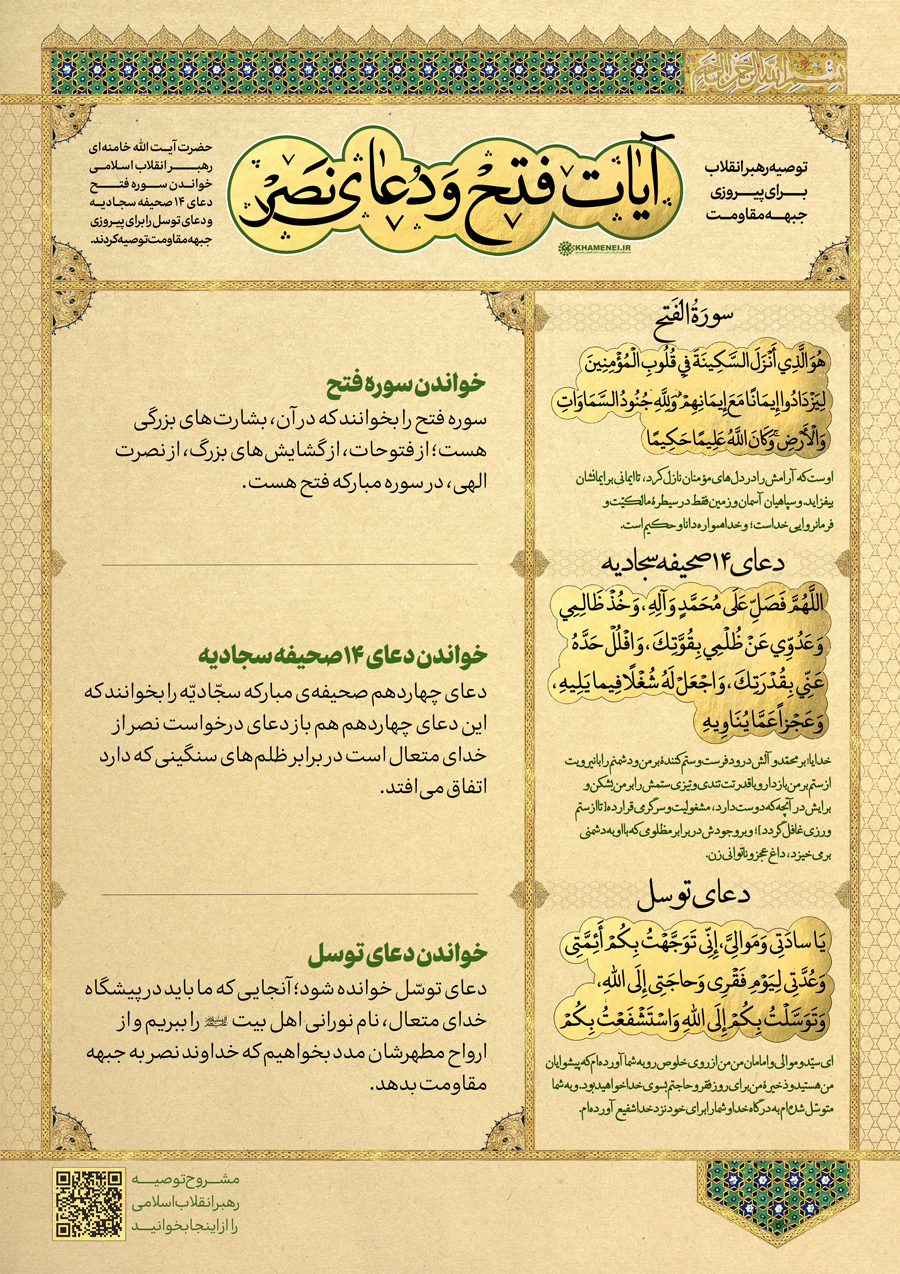 بسم الله الرحمن الرحیم
توصیه رهبر انقلاب
برای پیروزی
جبهه مقاومت
آیات فتح و دعای نصر
KHAMENEI.IR
حضرت آیت الله خامنه‌ای
رهبر انقلاب اسلامی
خواندن سوره فتح
دعای ۱۴ صحیفه سجادیه
و دعای توسل را برای پیروزی
جبهه مقاومت توصیه کردند.
سورة الفتح
هُوَ الَّذِي أَنْزَلَ السَّكِينَةَ فِي قُلُوبِ الْمُؤْمِنِينَ
لِيَزْدَادُوا إِيمَانًا مَعَ إِيمَانِهِمْ ۗ وَلِلَّهِ جُنُودُ السَّمَاوَاتِ
وَالْأَرْضِ ۚ وَكَانَ اللَّهُ عَلِيمًا حَكِيمًا
اوست که آرامش را در دل‌های مؤمنان نازل کرد، تا ایمانی بر ایمانشان
بیفزاید. و سپاهیان آسمان و زمین فقط در سیطرهٔ مالکیّت و
فرمانروایی خداست؛ و خدا همواره دانا و حکیم است.
خواندن سوره فتح
سوره فتح را بخوانند که در آن، بشارت‌های بزرگی
هست؛ از فتوحات، از گشایش‌های بزرگ، از نصرت
الهی، در سوره مبارکه فتح هست.
دعای ۱۴ صحیفه سجادیه
اللَّهُمَّ فَصَلِّ عَلَى مُحَمَّدٍ وَآلِهِ، وَخُذْ ظَالِمِي
وَعَدُوِّي عَنْ ظُلْمِي بِقُوَّتِكَ، وَافْلُلْ حَدَّهُ
عَنِّي بِقُدْرَتِكَ، وَاجْعَلْ لَهُ شُغْلًا فِيمَا يَلِيهِ،
وَعَجْزاً عَمَّا يُنَاوِيهِ
خدایا! بر محمّد و آلش درود فرست و ستم کنندهٔ بر من و دشمنم را با نیرویت
از ستم بر من بازدار و با قدرتت تندی و تیزی ستمش را بر من بشکن و
برایش در آنچه که دوست دارد، مشغولیت و سرگرمی قرار ده [تا از ستم
ورزی غافل گردد]؛ و بر وجودش در برابر مظلومی که با او به دشمنی
برمی‌خیزد، داغ عجز و ناتوانی زن.
خواندن دعای ۱۴ صحیفه سجادیه
دعای چهاردهم صحیفه‌ی مبارکه سجّادیّه را بخوانند که
این دعای چهاردهم هم باز دعای درخواست نصر از
خدای متعال است در برابر ظلم‌های سنگینی که دارد
اتفاق می‌افتد.
دعای توسل
يَا سادَتِى وَمَوالِيَّ، إِنِّى تَوَجَّهْتُ بِكُمْ أَئِمَّتِى
وَعُدَّتِى لِيَوْمِ فَقْرِى وَحاجَتِى إِلَى اللّٰهِ،
وَتَوَسَّلْتُ بِكُمْ إِلَى اللّٰهِ وَاسْتَشْفَعْتُ بِكُمْ
ای سیّد و موالی و امامان من من از روی خلوص رو به شما آورده‌ام که پیشوایان
من هستید و ذخیرهٔ من برای روز فقر و حاجتم بسوی خدا خواهید بود. و به شما
متوسّل شده‌ام به درگاه خدا و شما را برای خود نزد خدا شفیع آورده‌ام.
خواندن دعای توسل
دعای توسّل خوانده شود؛ آنجایی که ما باید در پیشگاه
خدای متعال، نام نورانی اهل بیت را ببریم و از
ارواح مطهرشان مدد بخواهیم که خداوند نصر به جبهه
مقاومت بدهد.
مشروح توصیه
رهبر انقلاب اسلامی
را از اینجا بخوانید